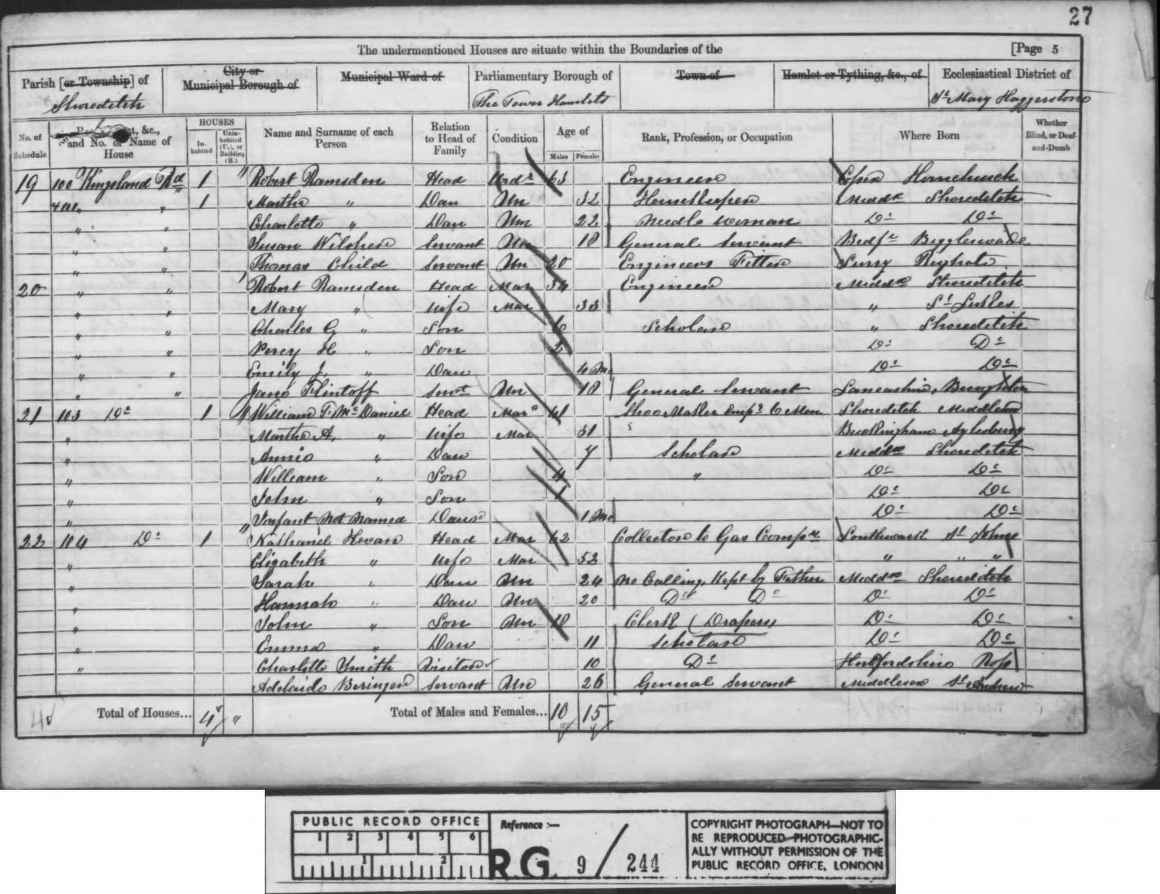 27
The undermentioned Houses are situate within the Boundaries of the [Page 5
Parish [or Township] of City or Municipal Borough of Municipal Ward of Parliamentary Borough of Town of Hamlet or Tything, &c., of Ecclesiastical District of
Shoreditch The Tower Hamlets St Mary Haggerstone
No. of Schedule &c., and No. or Name of House HOUSES Inhabited Uninhabited (U.), or Building (B.) Name and Surname of each Person Relation to Head of Family Condition Age of Males Females Rank, Profession, or Occupation Where Born Whether Blind, or Deaf-and-Dumb
19 100 Kingsland Rd 1 Robert Ramsden Head 63 Engineer Hornchurch
" 1 Martha " Dau Un 32 Housekeeper Middx Shoreditch
" " Charlotte " Dau Un 22 Needle woman Do Do
" " Susan Servant Un 18 General Servant Bedfs Biggleswade
" " Thomas Child Servant Un 20 Engineers Fitter
20 " " Robert Ramsden Head Mar 34 Engineer Middx Shoreditch
" " Mary " Wife Mar 33 " St Lukes
" " Charles G " Son 6 Scholar " Shoreditch
" " Percy H " Son 2 Do Do
" " Emily J. " Dau 4 Mo Do Do
" " Jane Flintoff Servt Un 18 General Servant Lancashire
21 103 Do 1 William T. McDaniel Head Mar 41 Shoe Maker Shoreditch
" Martha A. " Wife Mar 31 Buckingham Aylesbury
" Annie " Dau 7 Scholar Middx Shoreditch
" William " Son 4 " Do Do
" John " Son 1 Do Do
" Infant Not Named Daur 1 Mo Do Do
22 104 Do 1 Nathaniel Head Mar 62 Collector to Gas Compy Southwark St Johns
" Elizabeth " Wife Mar 52 " " "
" Sarah " Dau Un 24 No Calling, Kept by Father Middx Shoreditch
" Hannah " Dau Un 20 Do Do Do Do
" John " Son Un 18 Clerk (Drapers) Do Do
" Emma " Dau 11 Scholar Do Do
" Charlotte Smith Visitor 10 Do Hertfordshire
Adelaide Servant Un 26 General Servant Middlesex St Andrew
Total of Houses... 4 " Total of Males and Females... 10 15
PUBLIC RECORD OFFICE
1 2 3 4 5 6
1 2
Reference :-
RG 9 / 244
COPYRIGHT PHOTOGRAPH—NOT TO
BE REPRODUCED PHOTOGRAPHIC-
ALLY WITHOUT PERMISSION OF THE
PUBLIC RECORD OFFICE, LONDON